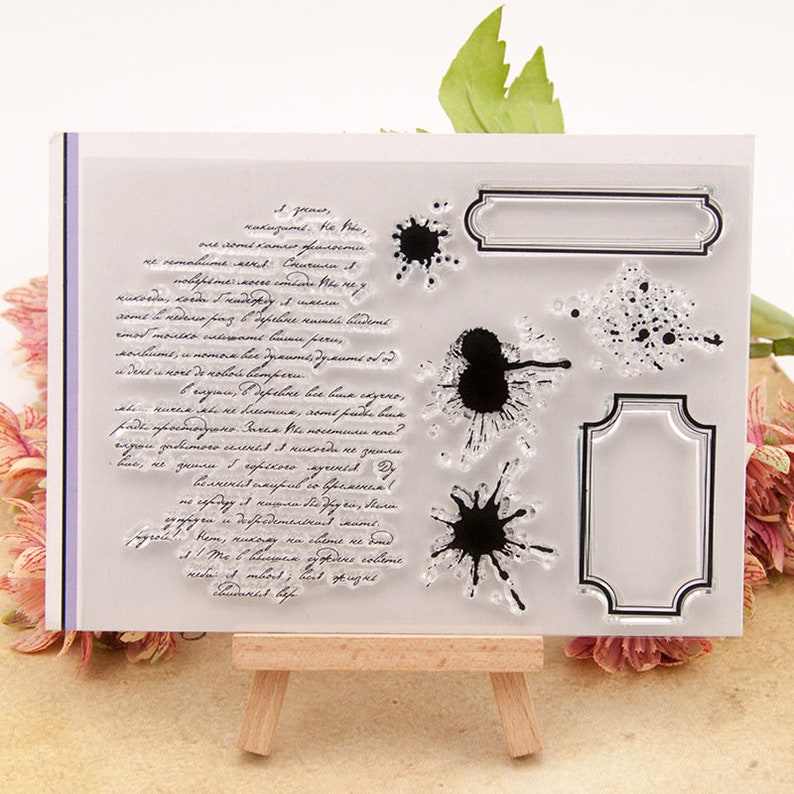 я знаю,
наказать. Но Вы,
оле хоть каплю жалости
не оставите меня. Сначала я
поверьте: моего стыда Вы не у
никогда, когда б надежду я имела
хоть в неделю раз в деревне нашей видеть
чтоб только слышать ваши речи,
молвить, и потом все думать, думать об од
и день и ночь до новой встречи.
в глуши, в деревне все вам скучно,
мы... ничем мы не блестим, хоть рады вам
рады простодушно. Зачем Вы посетили нас?
глуши забытого селенья я никогда не знали
вас, не знали б горького мученья. Ду
волненья смирив со временем!
по сердцу я нашли бы друга, были
супруга и добродетельная мать.
ругой!.. Нет, никому на свете не отд
я! То в высшем суждено совете
неба: я твоя; вся жизнь
свиданья вер